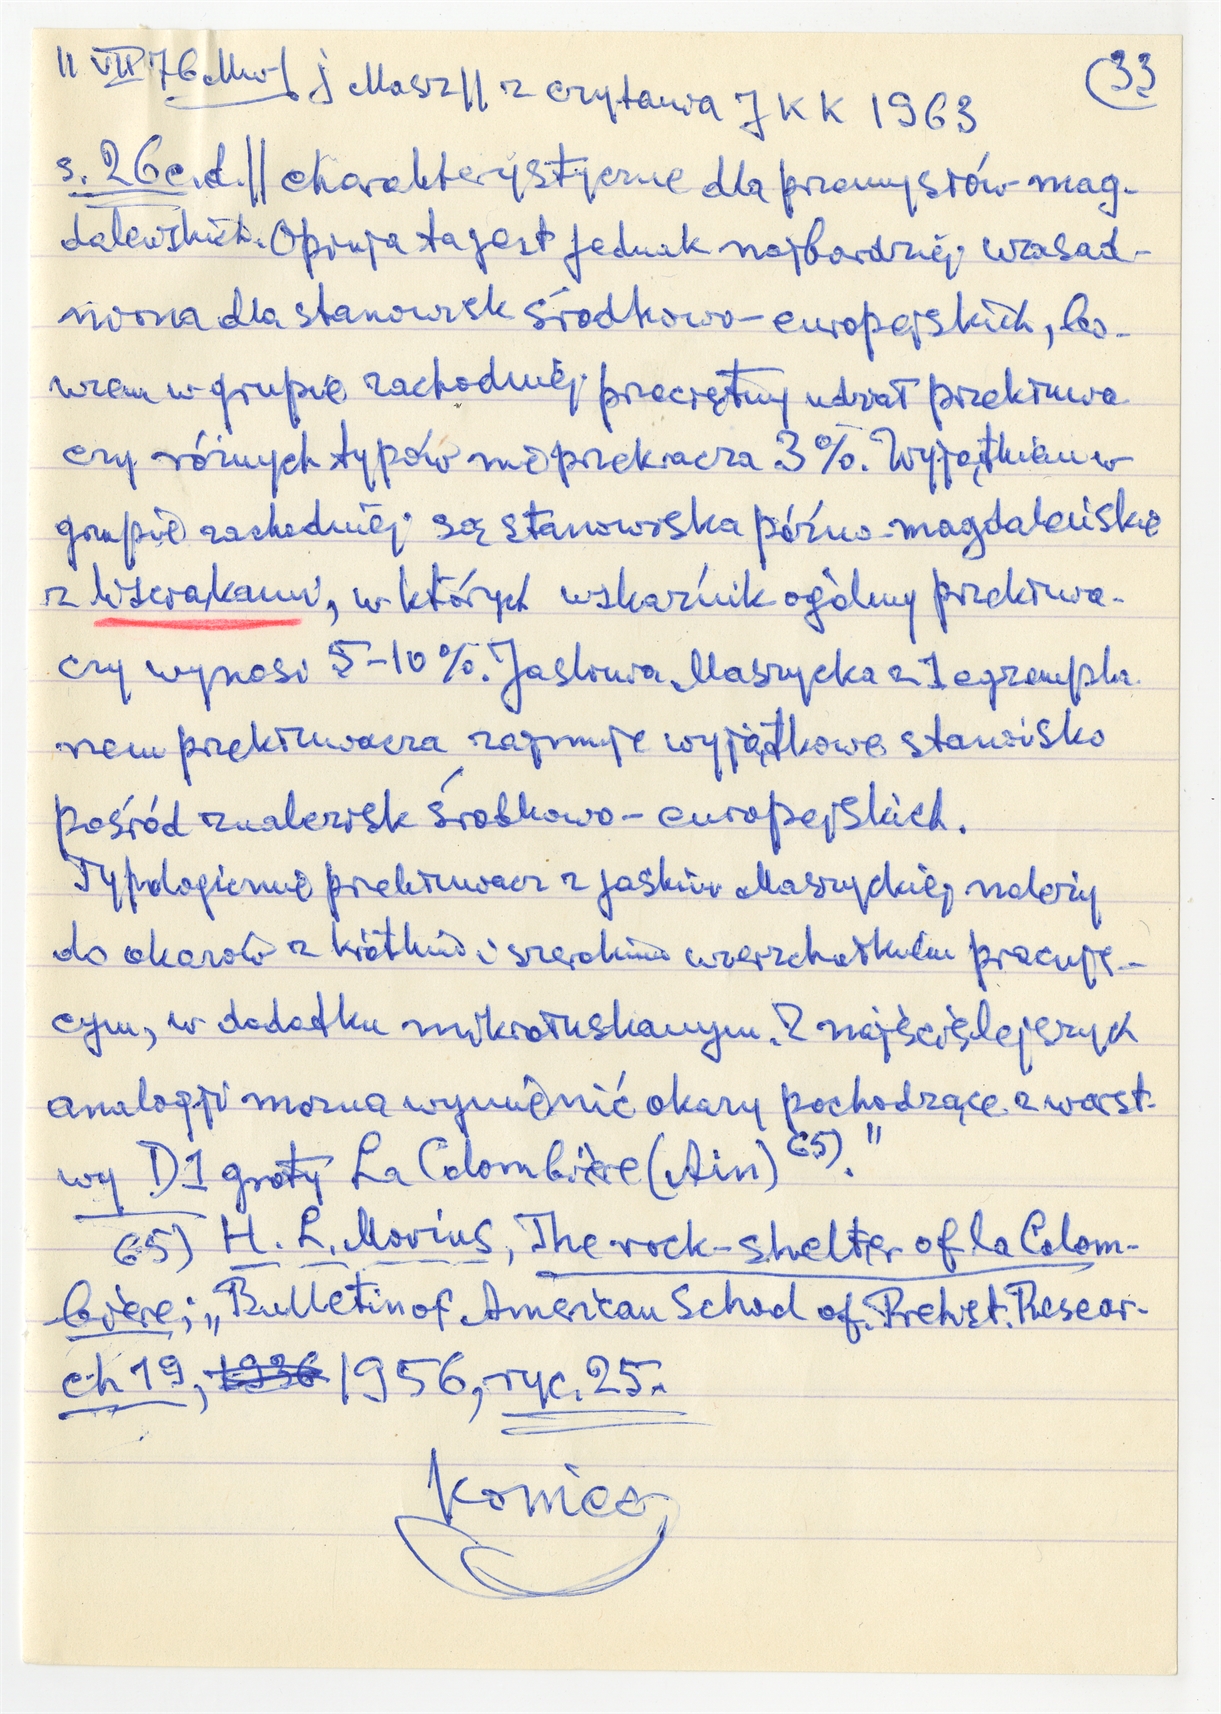 11 VII 76 j Masz || z czytania JKK 1963
33
s. 26 c.d. || charakterystyczne dla przemysłów mag-
daleńskich. Opinja ta jest jednak najbardziej uzasad-
niona dla stanowisk środkowo-europejskich, bo-
wiem w grupie zachodniej przeciętny udział przekłuwa
czy różnych typów nie przekracza 3%. Wyjątkiem w
grupie zachodniej są stanowiska późno-magdaleńskie
z liściakami, w których wskaźnik ogólny przekłuwa-
czy wynosi 5-10%. Jaskinia Maszycka z 1 egzempla
rzem przekłuwacza zajmuje wyjątkowe stanowisko
pośród znalezisk środkowo-europejskich.
Typologicznie przekłuwacz z jaskini Maszyckiej należy
do okazów z krótkim i szerokim wierzchołkiem pracują-
cym, w dodatku mikrołuskanym. Z najściślejszych
analogji można wymienić okazy pochodzące z warst-
wy D1 groty La Colombière (Ain) 65)."
65) H. L. Movius, The rock-shelter of la Colom-
bière; „Bulletin of American School of Prehist. Resear-
ch 19, 1936 1956, ryc. 25.
Koniec